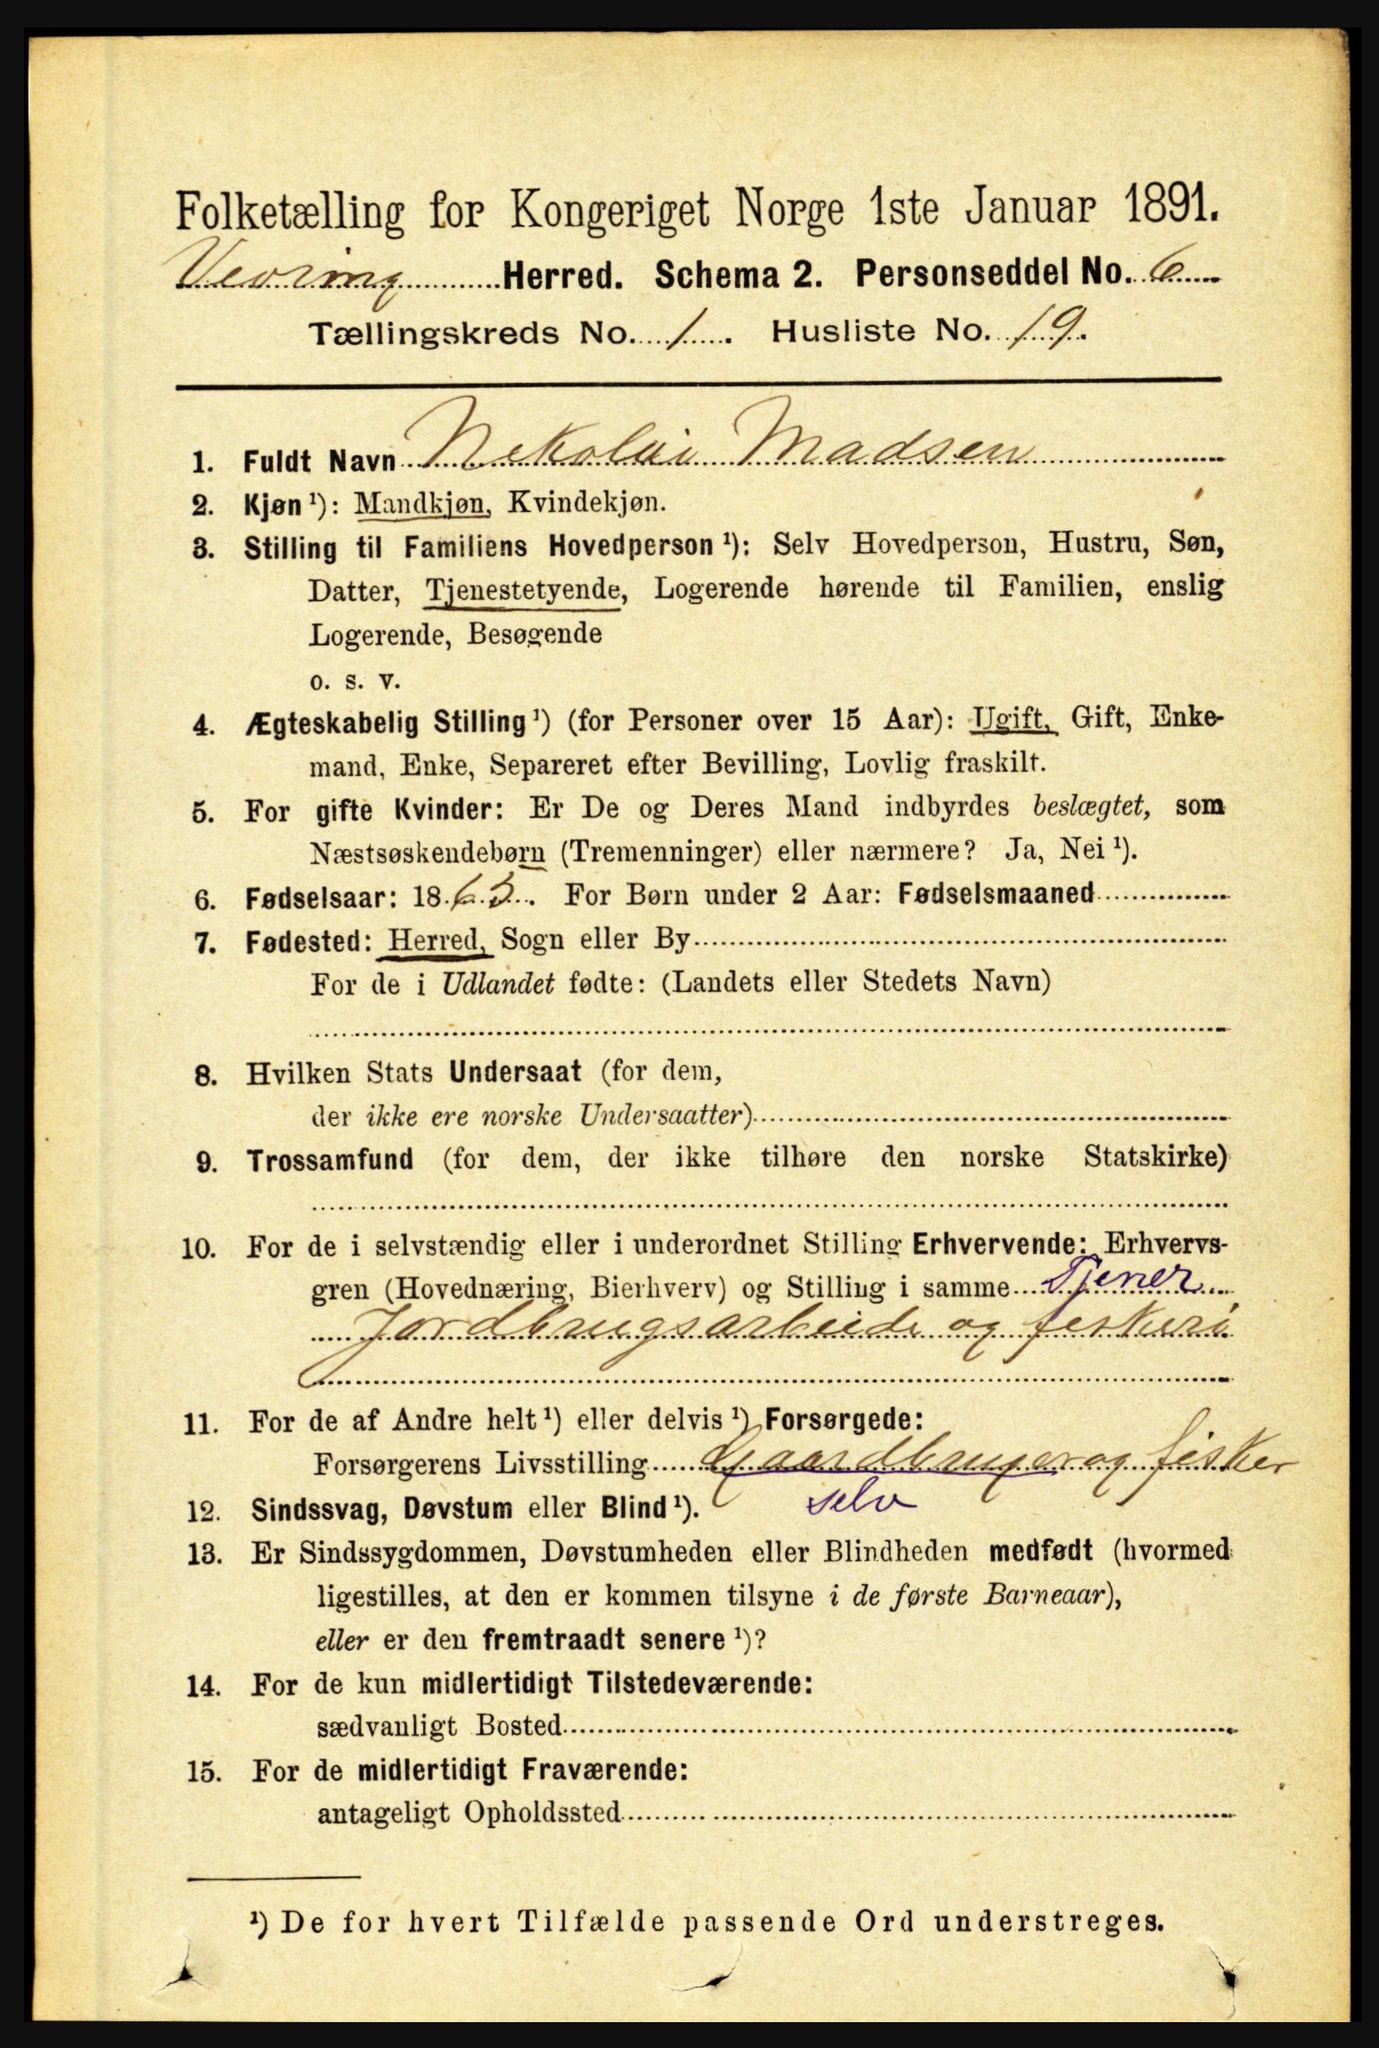 Folketælling for Kongeriget Norge 1ste Januar 1891.
Vevring Herred. Schema 2. Personseddel No. 6
Tællingskreds No. 1. Husliste No. 19.
1. Fuldt Navn Nekolai Madsen
2. Kjøn ¹): Mandkjøn, Kvindekjøn.
3. Stilling til Familiens Hovedperson ¹): Selv Hovedperson, Hustru, Søn,
Datter, Tjenestetyende, Logerende hørende til Familien, enslig
Logerende, Besøgende
o. s. v.
4. Ægteskabelig Stilling ¹) (for Personer over 15 Aar): Ugift, Gift, Enke-
mand, Enke, Separeret efter Bevilling, Lovlig fraskilt.
5. For gifte Kvinder: Er De og Deres Mand indbyrdes beslægtet, som
Næstsøskendebørn (Tremenninger) eller nærmere? Ja, Nei ¹).
6. Fødselsaar: 1865. For Børn under 2 Aar: Fødselsmaaned
7. Fødested: Herred, Sogn eller By
For de i Udlandet fødte: (Landets eller Stedets Navn)
8. Hvilken Stats Undersaat (for dem,
der ikke ere norske Undersaatter)
9. Trossamfund (for dem, der ikke tilhøre den norske Statskirke)
10. For de i selvstændig eller i underordnet Stilling Erhvervende: Erhvervs-
gren (Hovednæring, Bierhverv) og Stilling i samme Tjener
Jordbrugsarbeide og feskeri
11. For de af Andre helt ¹) eller delvis ¹) Forsørgede:
Forsørgerens Livsstilling Gaardbruger og fisker
12. Sindssvag, Døvstum eller Blind ¹). selv
13. Er Sindssygdommen, Døvstumheden eller Blindheden medfødt (hvormed
ligestilles, at den er kommen tilsyne i de første Barneaar),
eller er den fremtraadt senere ¹)?
14. For de kun midlertidigt Tilstedeværende:
sædvanligt Bosted
15. For de midlertidigt Fraværende:
antageligt Opholdssted
¹) De for hvert Tilfælde passende Ord understreges.